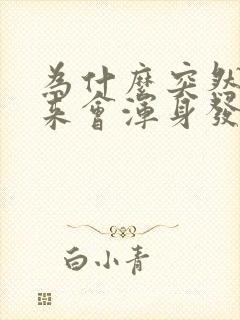 為什麼突然
來會渾身發
白小青